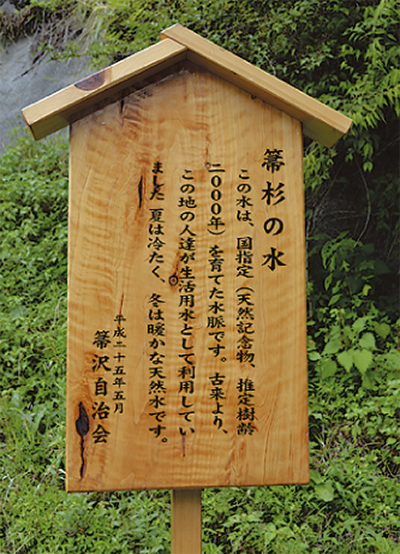 箒杉の水
この水は、国指定（天然記念物、推定樹齢
二〇〇〇年）を育てた水脈です。古来より、
この地の人達が生活用水として利用してい
ました　夏は冷たく、冬は暖かな天然水です。
平成二十五年五月
箒沢自治会